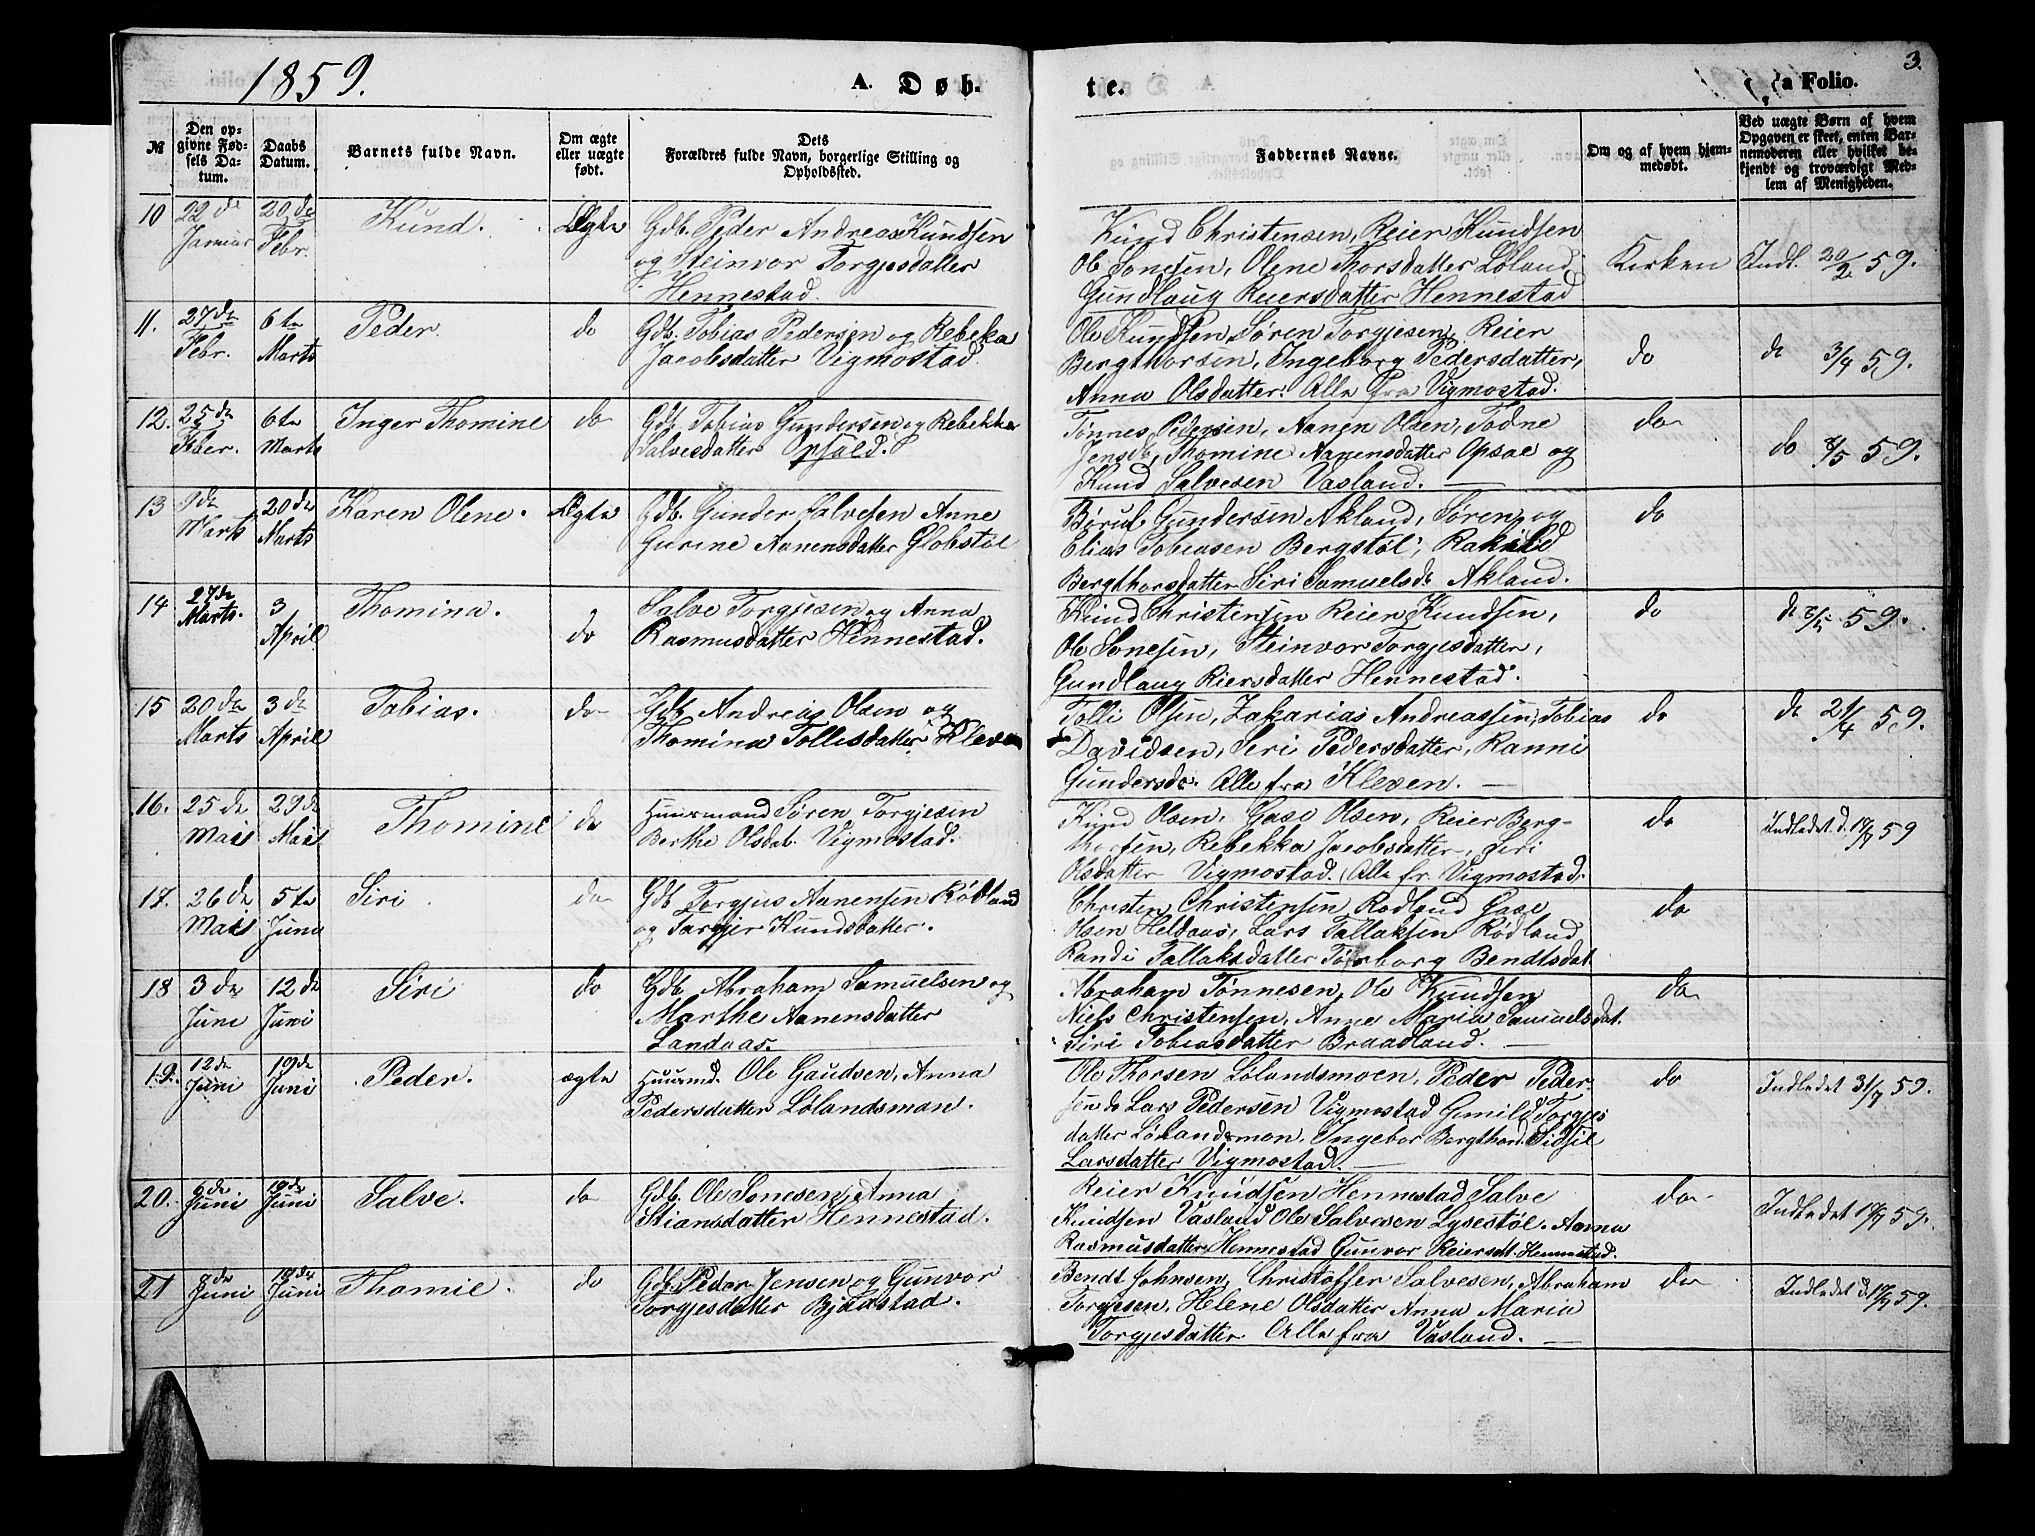 1859.
A. Døb-
te.
a Folio.
3.
№
Den op-
givne Fød-
sels Da-
tum.
Daabs
Datum.
Barnets fulde Navn.
Om ægte
eller uægte
født.
Dets
Forældres fulde Navn, borgerlige Stilling og
Opholdssted.
Faddernes Navne.
Om og af hvem hjem-
medøbt.
Ved uægte Børn af hvem
Opgaven er skeet, enten Bar-
nemoderen eller hvilket be-
kjendt og troværdigt Med-
lem af Menigheden.
10
22 de
Januar
20 de
Febr.
Knud.
Ægte
Gdb. Peder Andreas Knudsen
og Steinvor Torgjesdatter
Hennestad.
Knud Christensen, Reier Knudsen
Ole Sonesen, Olene Thorsdatter Løland,
Gundlaug Reiersdatter Hennestad
Kirken
Indl. 20/2 59.
11.
27 de
Febr.
6te
Marts
Peder.
do
Gdb. Tobias Pedersen og Rebeka
Jacobsdatter Vigmostad.
Ole Knudsen, Søren Torgjesen, Reier
Bergthorsen, Ingeborg Pedersdatter,
Anna Olsdatter. Alle fra Vigmostad.
do
do 3/4 59.
12.
25 de
Feber.
6te
Marts
Inger Thomine
do
Gdb. Tobias Gundersen og Rebekka
Salvesdatter Opsald.
Tønnes Pedersen, Aanen Olsen, Todne
Jensd., Thomine Aanensdatter Opsae og
Knud Salvesen Vasland.
do
do /5 59.
13
9de
Marts
20 de
Marts
Karen Olene.
Ægte
Gdb. Gunder Salvesen Anne
Gurine Aanensdatter Globstøl
Børuf Gundersen Akland, Søren og
Elias Tobiasen Bergstøl, Rakild
Bergthorsdatter Siri Samuelsd. Akland.
do
14
27 de
Marts.
3
April
Thomina.
do
Salve Torgjesen og Anna
Rasmusdatter Hennestad.
Knud Christensen Reier Knudsen,
Ole Sonesen, Steinvor Torgjesdatter,
Gundlaug Riersdatter Hennestad.
do
do 8/5 59.
15
20 de
Marts
3 de
April
Tobias.
do
Gdb. Andreas Olsen og
Thomina Tollisdatter Kleven
Tolli Olsen, Zakarias Andreassen, Tobias
Davidsen, Seri Pedersdatter, Ranni
Gundersdr. Alle fra Kleven.
do
do 21/4 59.
16.
25 de
Mais
29 de
Mais
Thomine
do
Huusmand Søren Torgjesen
Berthe Olsdat. Vigmostad.
Knud Olsen, Gase Olsen, Reier Berg-
thorsen, Rebekka Jacobsdatter, Siri
Olsdatter Vigmostad. Alle fr. Vigmostad.
do
Indledet d. 10/7 59
17.
26 de
Mais
5te
Juni
Siri
do
Gdb Torgjus Aanensen Rødland
og Targjer Knudsdatter.
Christen Christensen Rødland Gase
Olsen Heldaas, Lars Tallaksen Rødland
Randi Tallaksdatter Torborg Bendtsdat.
do
18
3 de
Juni
12 de
Juni
Siri
do
Gdb. Abraham Samuelsen og
Marthe Aanensdatter
Landaas.
Abraham Tønnesen, Ole Knudsen
Niels Christensen, Anne Maria Samuelsdat.
Siri Tobiasdatter Braadland.
do
19.
12 de
Juni
19 de
Juni
Peder.
ægte
Huusmd. Ole Gaudsen, Anna
Pedersdatter Lølandsmon.
Ole Thorsen Lølandsmoen, Peder Peder-
sen do Lars Pedersen Vigmostad Gunild Torgjes
datter Lølandsmon, Ingebor Bergthord. Sidsil
Larsdatter Vigmostad.
do
Indledet 31/7 59.
20.
6 de
Juni
19 de
Juni
Salve.
do
Gdb. Ole Sonesen, Anna
Stiansdatter Hennestad.
Reier Knudsen Hennestad Salve
Knudsen Vasland Ole Salvesen Lysestøl. Anna
Rasmusdatter Hennestad Gunvor Reiersdt. Hennestad.
do
Indledet 10/7 59.
21
8 de
Juni
19 de
Juni
Thomie.
do
Gdb. Peder Jensen og Gunvor
Torgjesdatter Bjaastad.
Bendt Johnsen, Christoffer Salvesen, Abraham
Torgjesen, Helene Olsdatter Anna Maria
Torgjesdatter Alle fra Vasland.
do
Indledet d. 10/7 59.